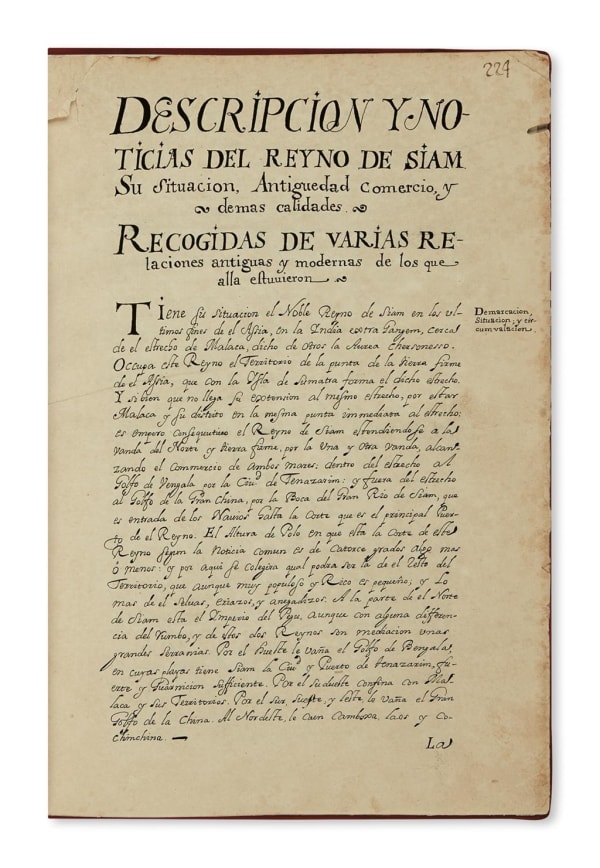 224
DESCRIPCION Y NO-
TICIAS DEL REYNO DE SIAM
Su Situacion, Antiguedad Comercio, y
demas calidades.
RECOGIDAS DE VARIAS RE-
laciones antiguas y modernas de los que
alla estuuieron
Tiene su situacion el Noble Reyno de Siam en los ul-
timos fines de el Assia, en la India extra Gangem, cerca
de el estrecho de Malaca, dicho de otros la Aurea Chersonesso.
Occupa este Reyno el Territorio de la punta de la tierra firme
de el Assia, que con la Ysla de Sumatra forma el dicho estrecho.
Y si bien que no llega su extension al mesmo estrecho, por estar
Malaca y su districto en la mesma punta immediata al estrecho:
es empero consequutiuo el Reyno de Siam estendiendose a la
vanda del Norte y tierra firme, por la una y otra vanda, alcan-
zando el Commercio de ambos mares; dentro del estrecho al
Golfo de Vengala por la Ciud de Tenazarim: y fuera del estrecho
al Golfo de la Gran China, por la Boca del Gran Rio de Siam, que
es entrada de los Nauios hasta la Corte que es el principal Puer-
to de el Reyno. El Altura de Polo en que esta la Corte de este
Reyno segun la Noticia comun es de Catorce grados algo mas
ô menos: y por aqui se colegira qual podra ser la de el resto del
Territorio, que aunque muy populoso y Rico es pequeño; y lo
mas de el Seluas, eriazos, y anegadizos. A la parte de el Norte
de Siam esta el Imperio del Pegu, aunque con alguna differen-
cia del Rumbo, y de estos dos Reynos son mediacion unas
grandes serranias. Por el hueste le vaña el Golfo de Bengala,
en cuyas playas tiene Siam la Ciud y Puerto de tenazarim, fu-
erte y Guarnicion sufficiente. Por el sudueste confina con Mal-
laca y sus Territorios. Por el Sur, sueste, y leste, le vaña el Gran
Golfo de la China. Al Nordeste, le caen Camboxa, laos y Co-
chinchina.
Demarcacion,
Situacion, y cir-
cumvalacion.
La